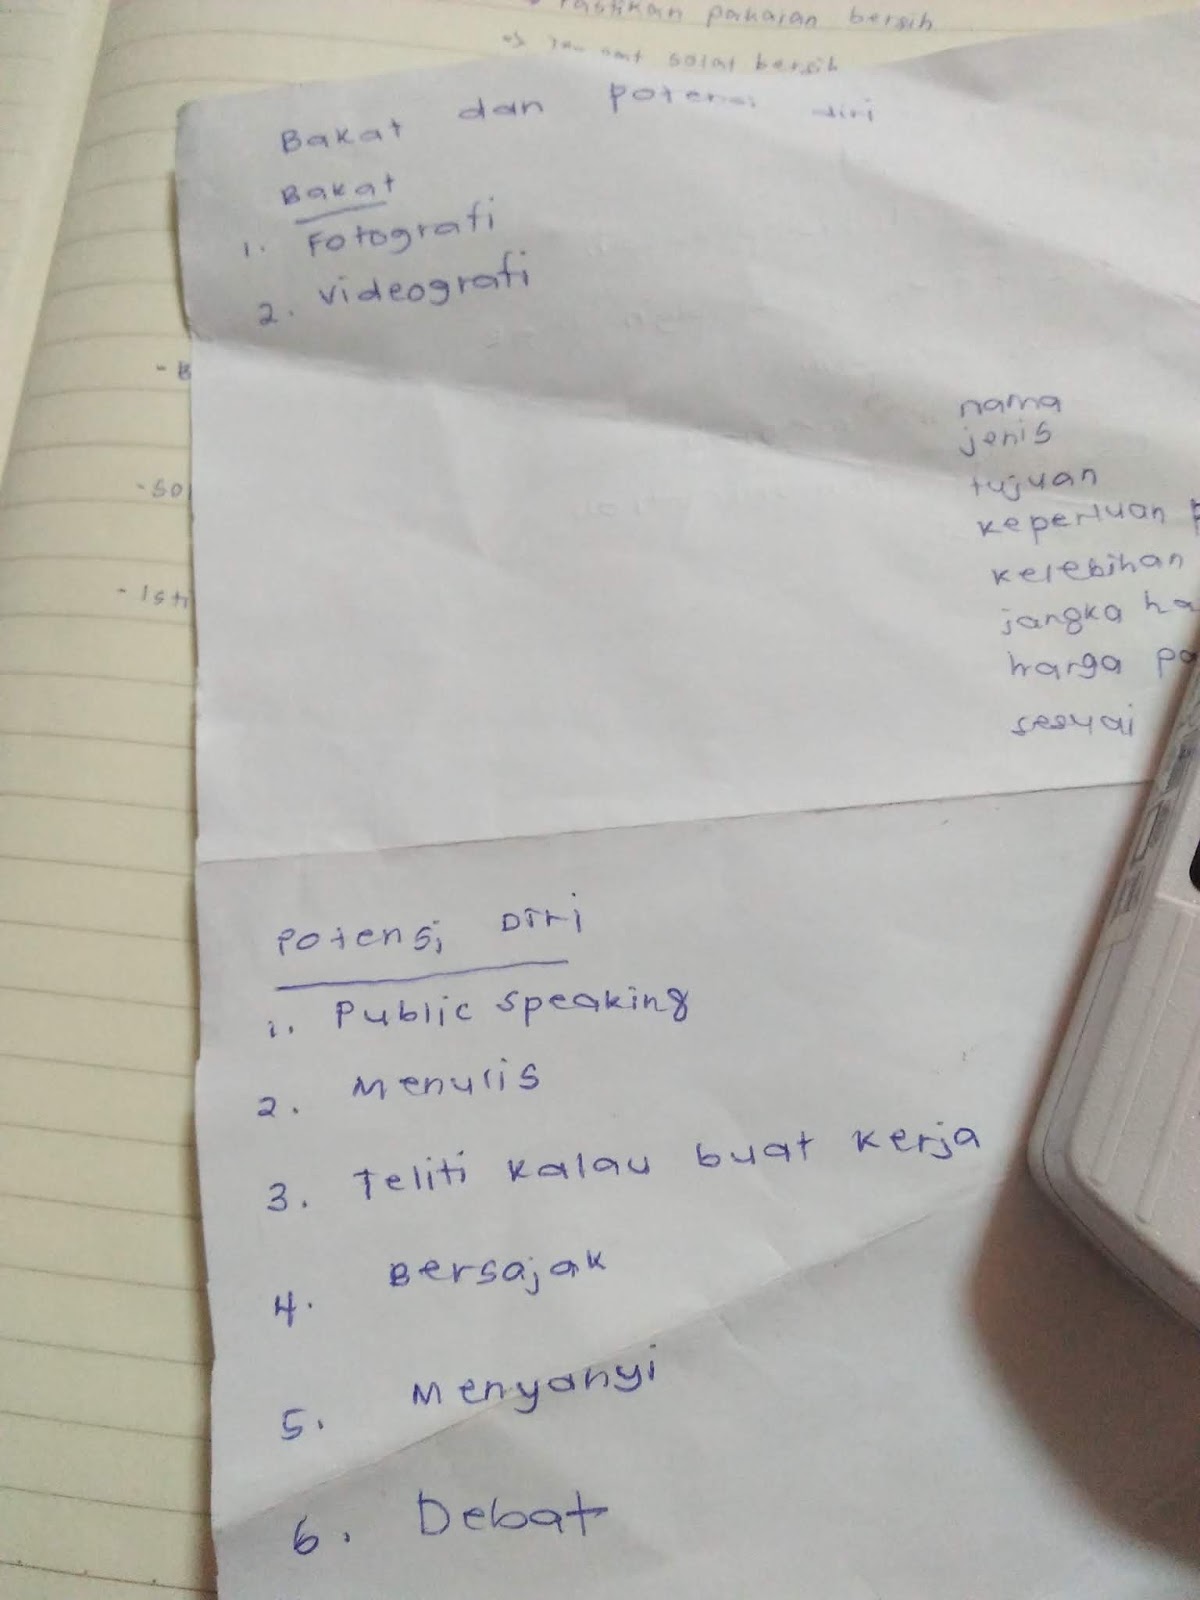 pakaian bersih
solat bersih
Bakat dan potensi diri
Bakat
1. Fotografi
2. Videografi
- B
- So
- Isti
nama
jenis
tujuan
keperluan P
kelebihan
jangka ha
harga pa
sesuai
Potensi Diri
1. Public speaking
2. Menulis
3. Teliti kalau buat kerja
4. Bersajak
5. Menyanyi
6. Debat